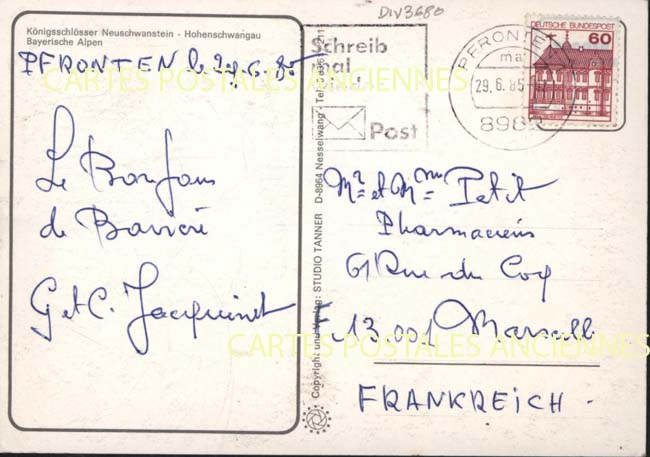 DIV3680
Königsschlösser Neuschwanstein - Hohenschwangau
Bayerische Alpen
PFRONTEN le 29.6.85
Le Bonjour
de Bavière
G et C. Jacquinet
Copyright und Verlag: STUDIO TANNER D-8964 Nesselwang
Schreib
mal
Post
PFRONTEN
29.6.85
DEUTSCHE BUNDESPOST
60
Mr et Mme Petit
Pharmaciens
61 Rue du Coq
F 13.001 Marseille
FRANKREICH.
CARTES POSTALES ANCIENNES
CARTES POSTALES ANCIENNES